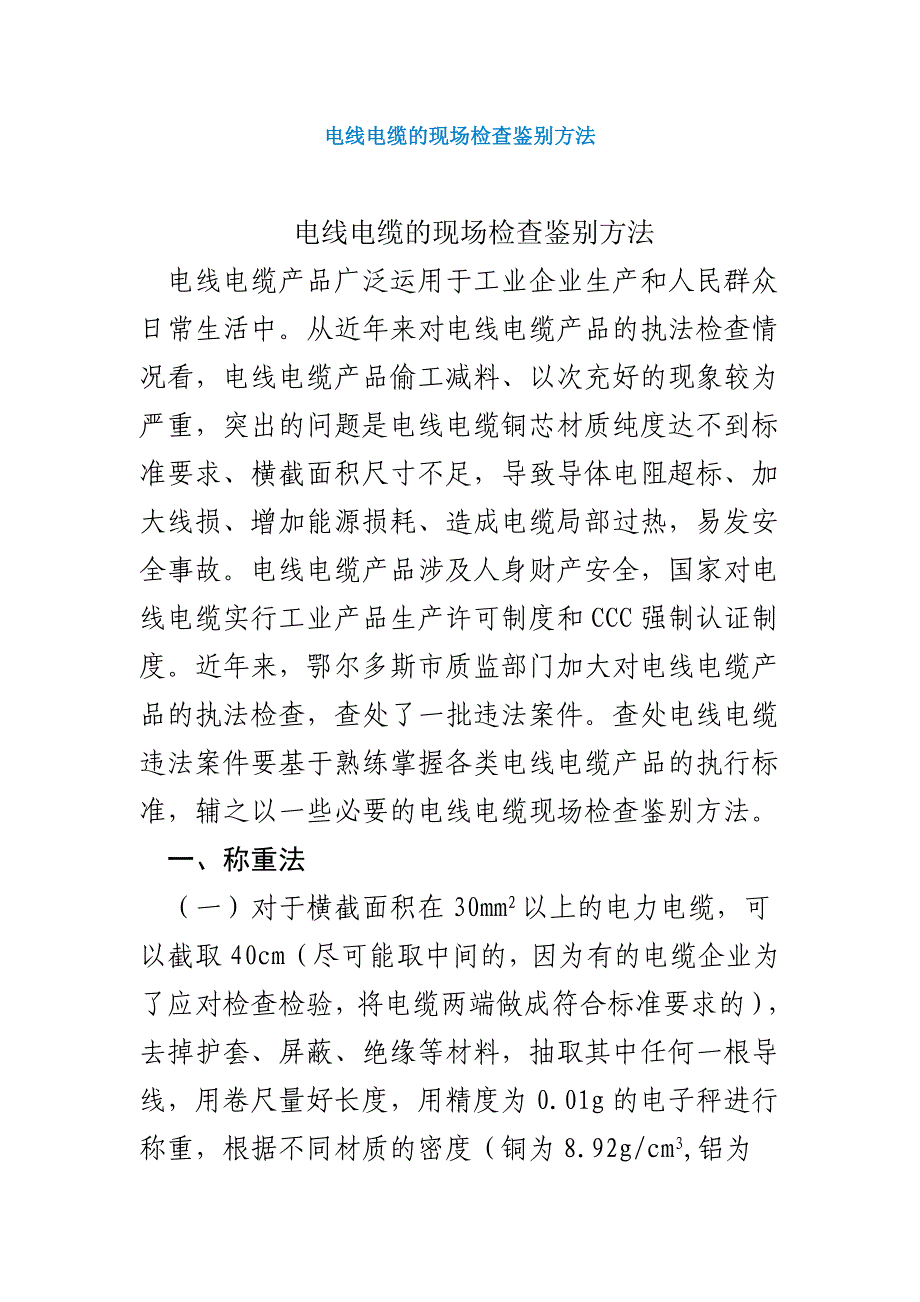 电线电缆的现场检查鉴别方法
电线电缆的现场检查鉴别方法
电线电缆产品广泛运用于工业企业生产和人民群众
日常生活中。从近年来对电线电缆产品的执法检查情
况看，电线电缆产品偷工减料、以次充好的现象较为
严重，突出的问题是电线电缆铜芯材质纯度达不到标
准要求、横截面积尺寸不足，导致导体电阻超标、加
大线损、增加能源损耗、造成电缆局部过热，易发安
全事故。电线电缆产品涉及人身财产安全，国家对电
线电缆实行工业产品生产许可制度和 CCC 强制认证制
度。近年来，鄂尔多斯市质监部门加大对电线电缆产
品的执法检查，查处了一批违法案件。查处电线电缆
违法案件要基于熟练掌握各类电线电缆产品的执行标
准，辅之以一些必要的电线电缆现场检查鉴别方法。
一、称重法
（一）对于横截面积在 30mm²以上的电力电缆，可
以截取 40cm（尽可能取中间的，因为有的电缆企业为
了应对检查检验，将电缆两端做成符合标准要求的），
去掉护套、屏蔽、绝缘等材料，抽取其中任何一根导
线，用卷尺量好长度，用精度为 0.01g 的电子秤进行
称重，根据不同材质的密度（铜为 8.92g/cm³,铝为